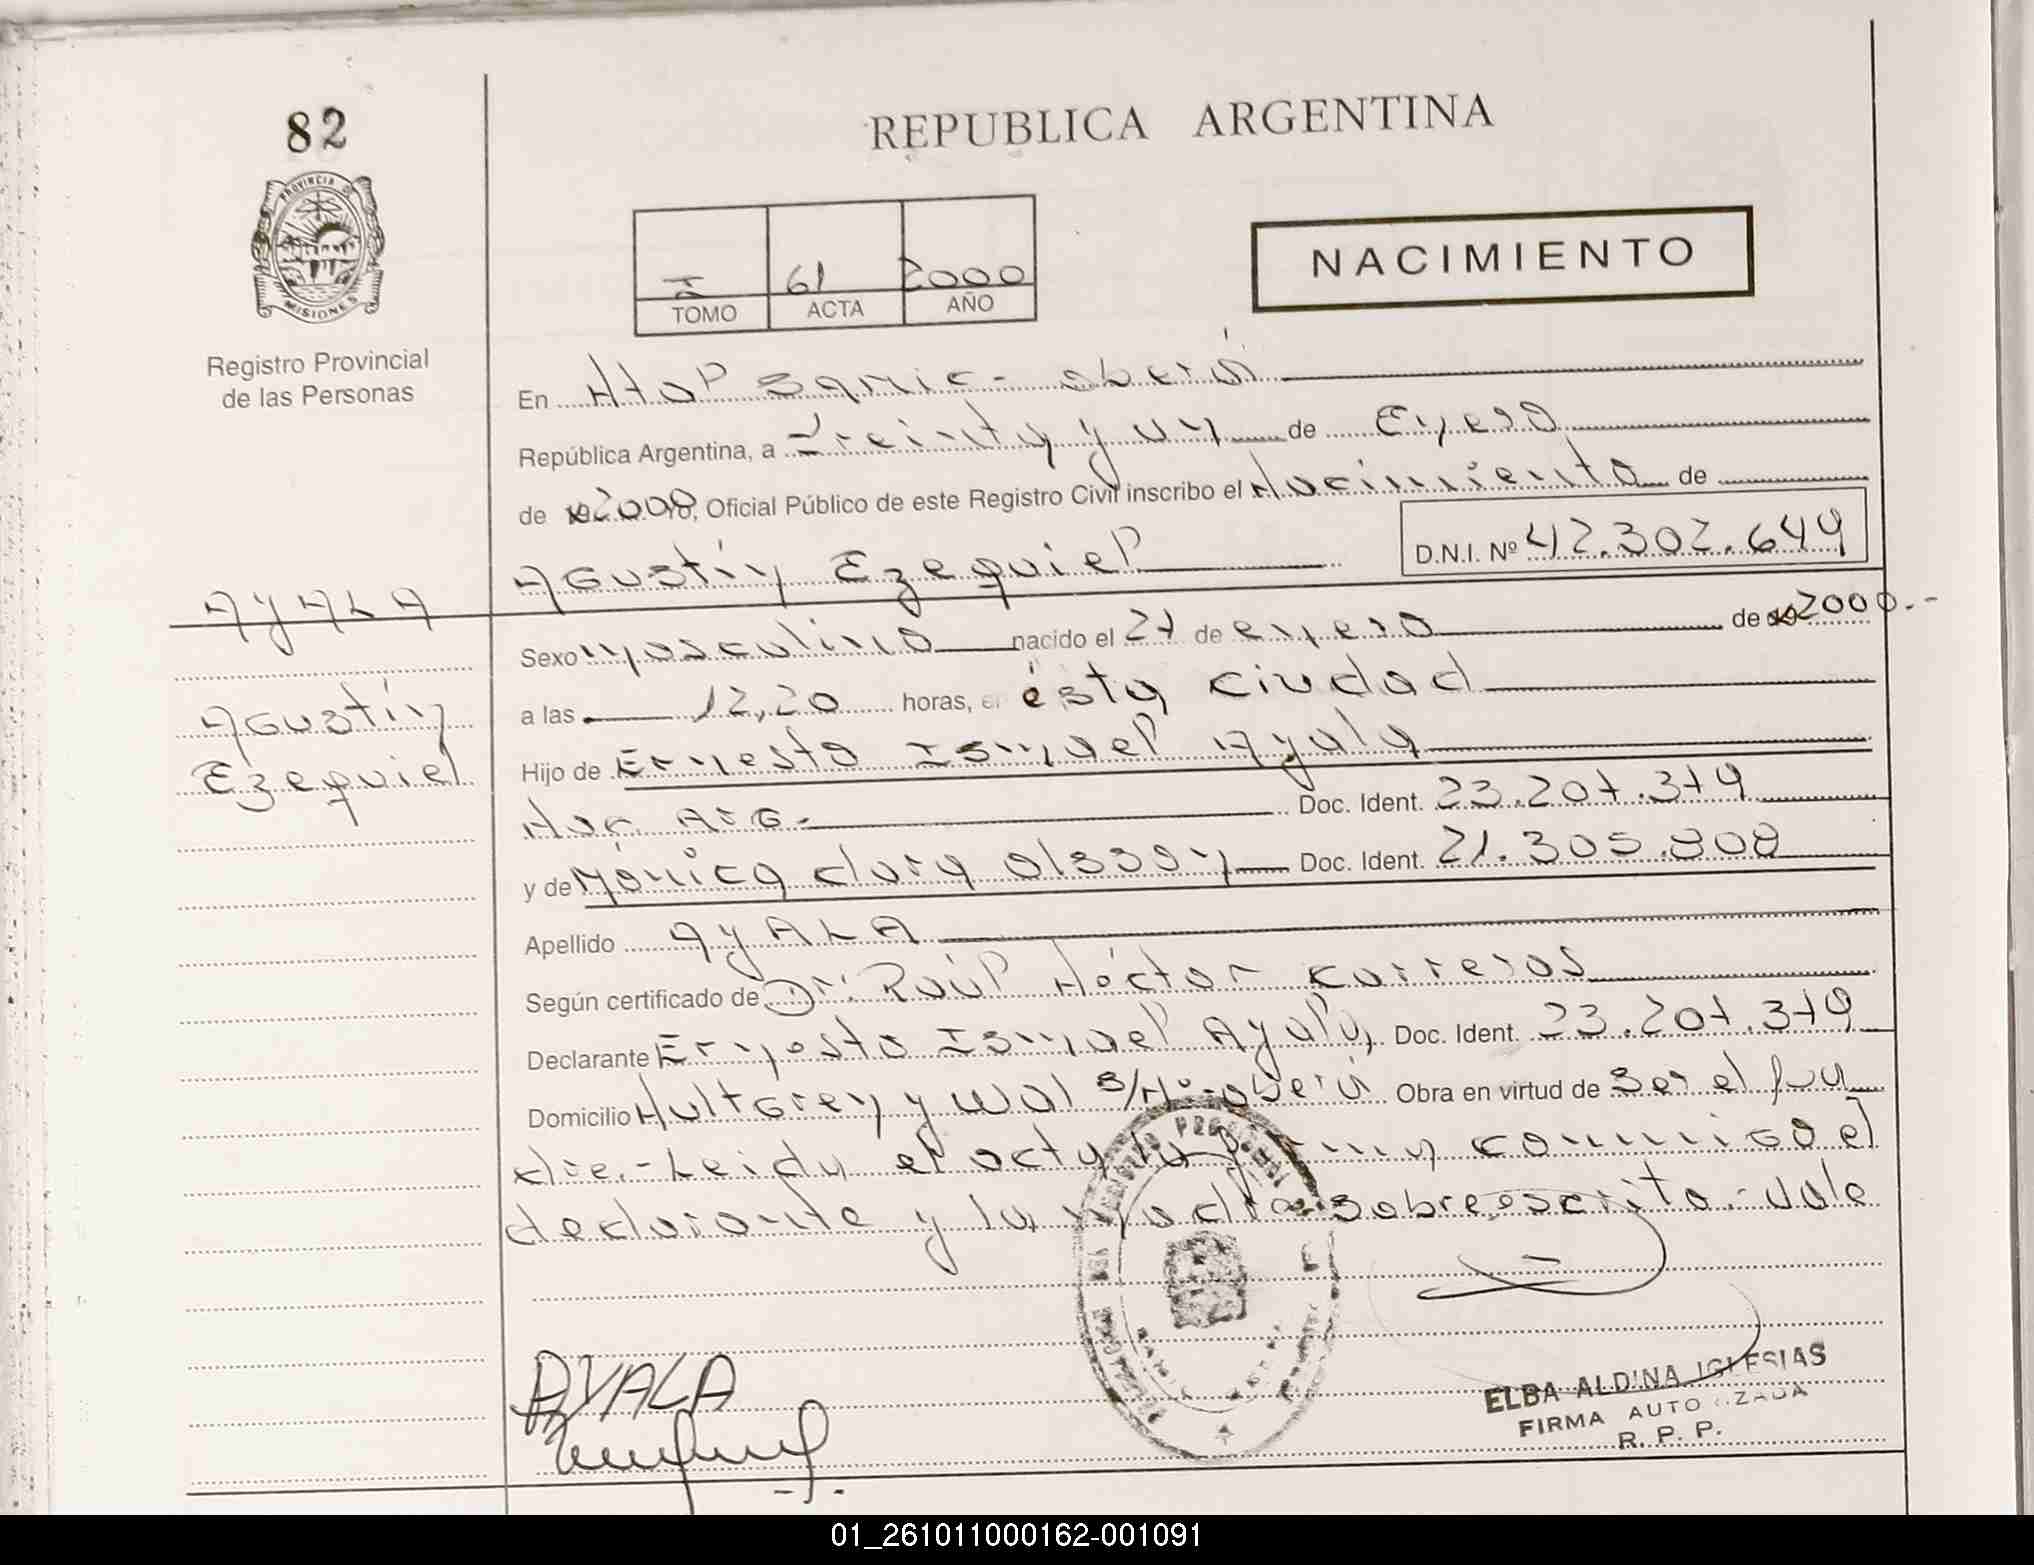 82
REPUBLICA ARGENTINA
PROVINCIA DE
MISIONES
Registro Provincial
de las Personas
I 61 2000
TOMO ACTA AÑO
NACIMIENTO
En Htal Samic - oberá
República Argentina, a Treinta y un de Enero
de 2000, Oficial Público de este Registro Civil inscribo el Nacimiento de
Agustín Ezequiel D.N.I. Nº 42.302.649
AYALA
Sexo masculino nacido el 27 de enero de 2000.-
a las 12,20 horas, en ésta ciudad
Agustín
Ezequiel
Hijo de Ernesto Ismael Ayala
Nac. Arg.- Doc. Ident. 23.207.379
y de Mónica Clara Olsson Doc. Ident. 21.305.808
Apellido AYALA
Según certificado de Dr. Raúl Héctor Carreras
Declarante Ernesto Ismael Ayala, Doc. Ident. 23.207.379
Domicilio y S/Nº-oberá Obra en virtud de Ser el pa
dre.-Leída el acta la firman conmigo el
declarante y la madre. sobreescrito.-vale
AYALA
ELBA ALDINA IGLESIAS
FIRMA AUTORIZADA
R. P. P.
01_261011000162-001091